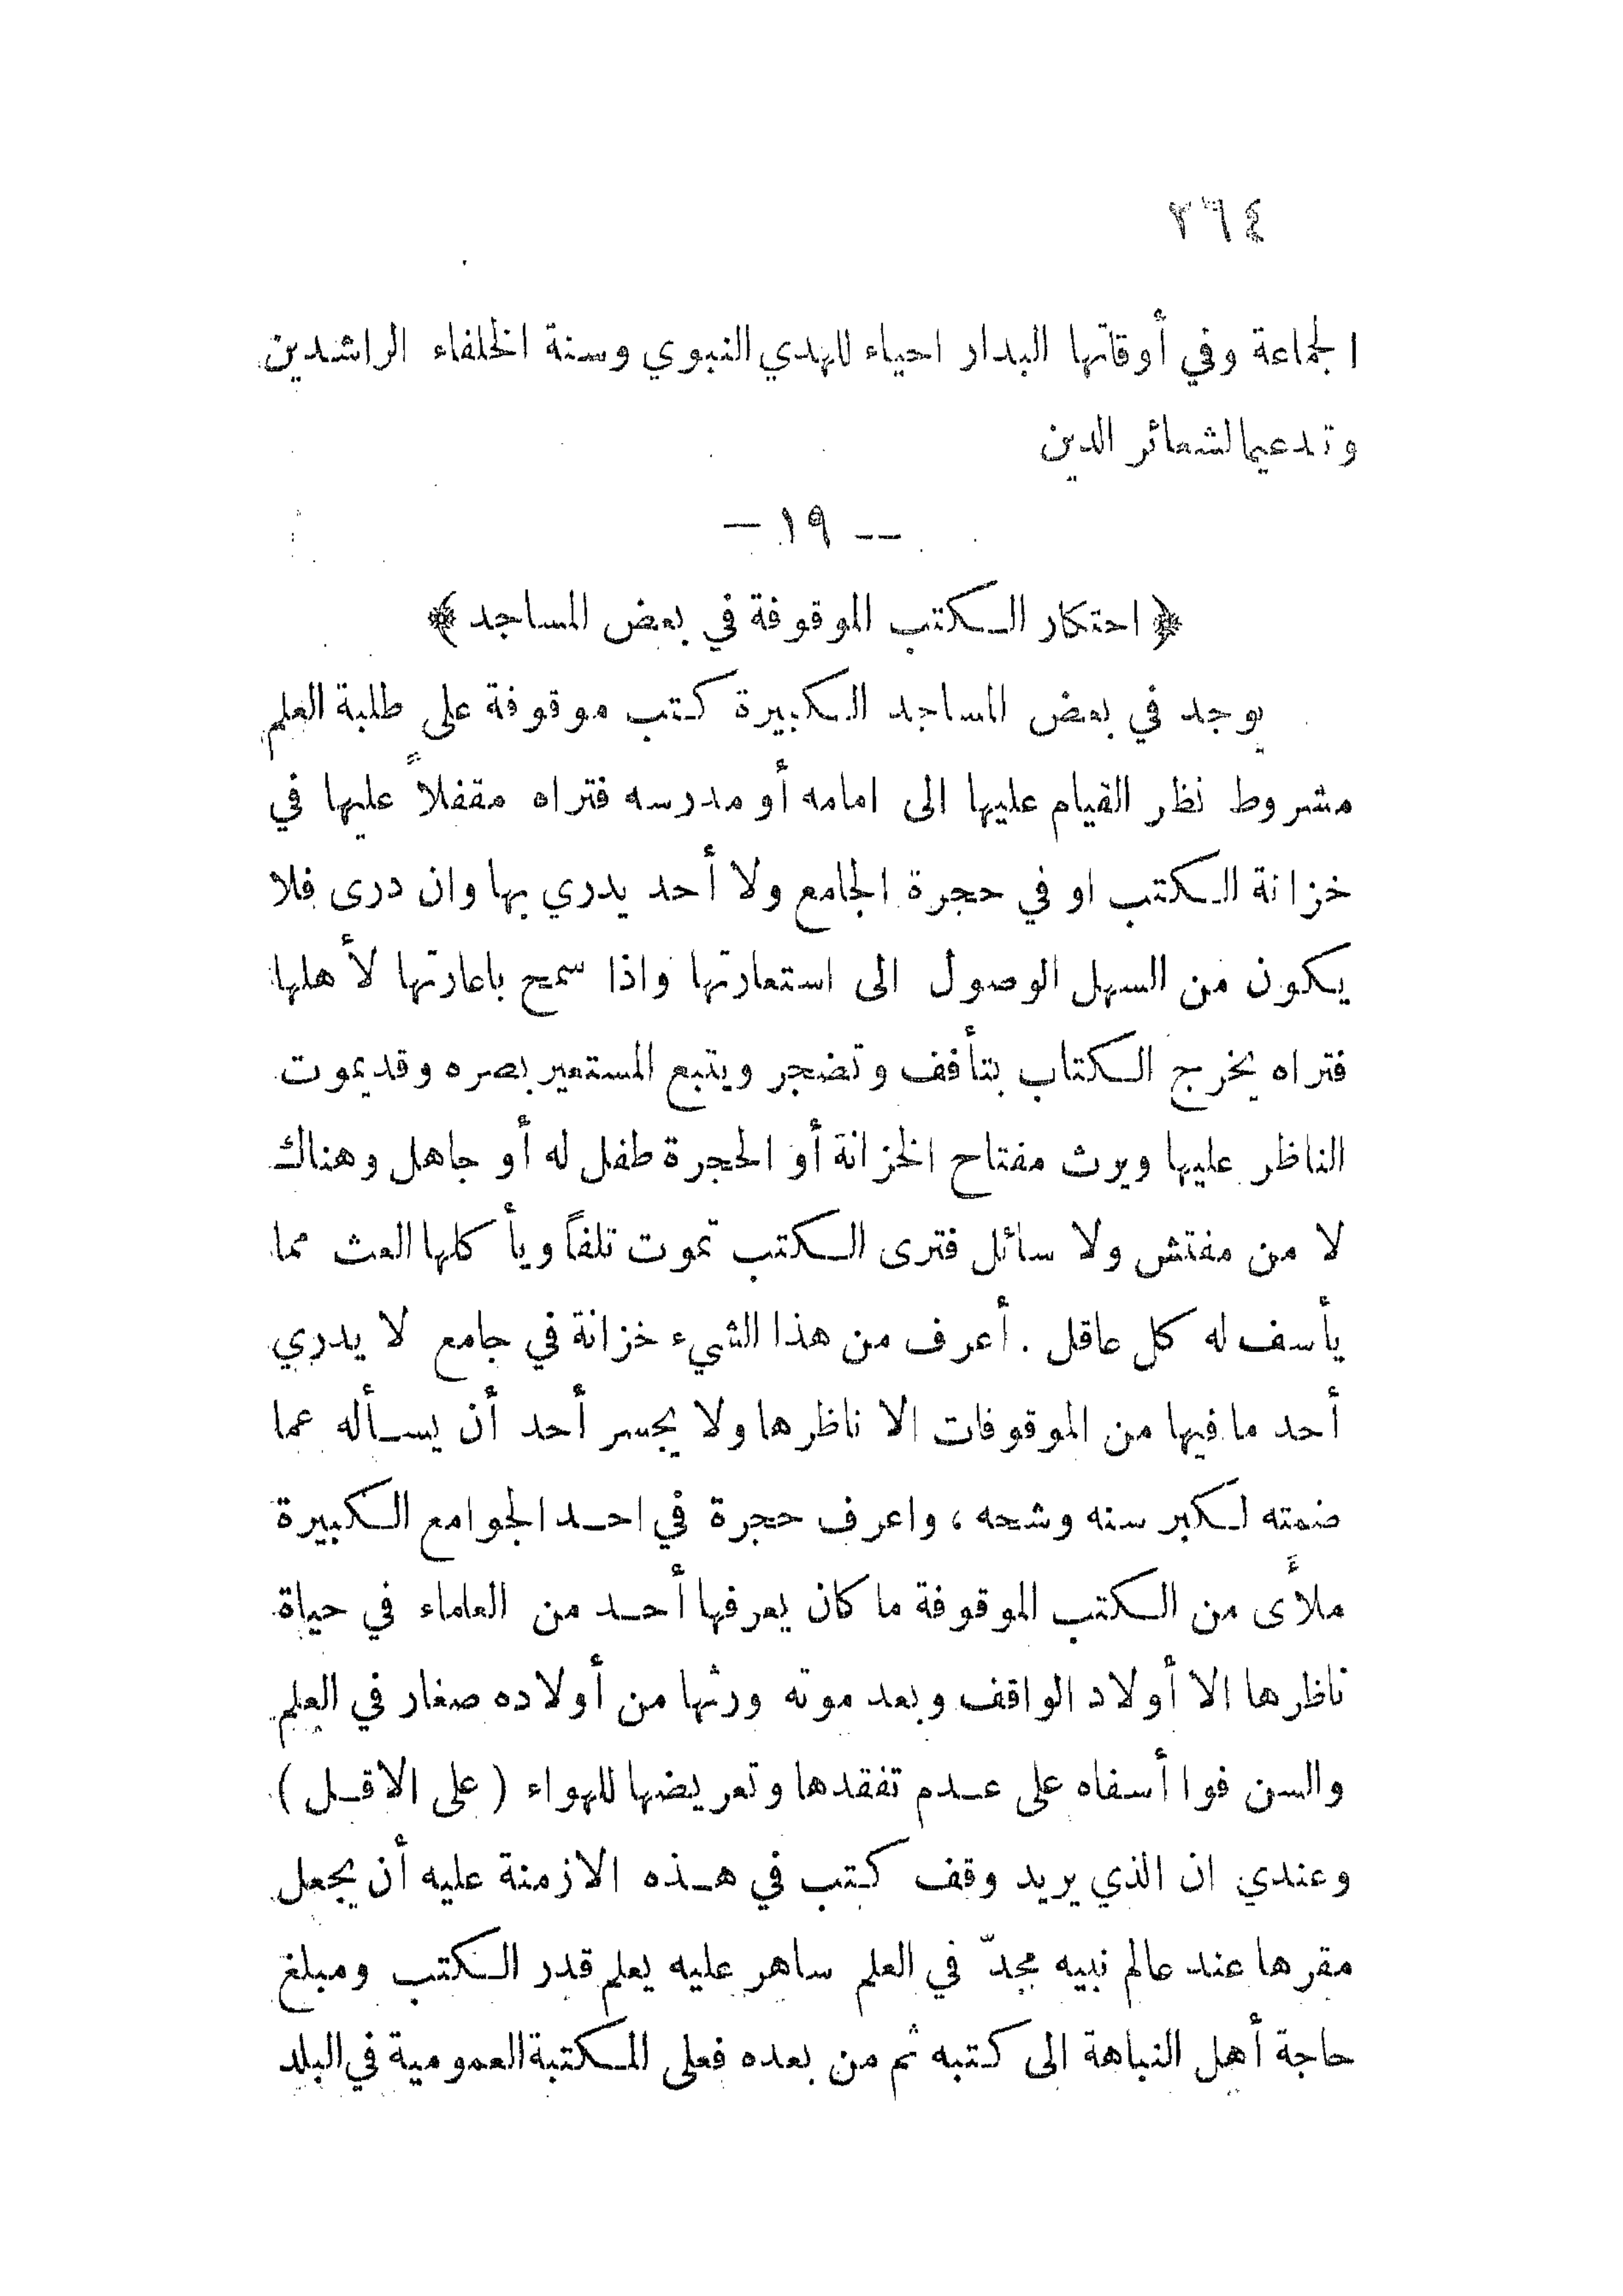 ٢٦٤
الجماعة وفي أوقاتها البدار احياء للهدي النبوي وسنة الخلفاء الراشدين
وتدعيما لشعائر الدين
— ١٩ —
﴿ احتكار الكتب الموقوفة في بعض المساجد ﴾
يوجد في بعض المساجد الكبيرة كتب موقوفة على طلبة العلم
مشروط نظر القيام عليها الى امامه أو مدرسه فتراه مقفلاً عليها في
خزانة الكتب او في حجرة الجامع ولا أحد يدري بها وان درى فلا
يكون من السهل الوصول الى استعارتها واذا سمح باعارتها لأهلها
فتراه يخرج الكتاب بتأفف وتضجر ويتبع المستعير بصره وقد يموت
الناظر عليها ويرث مفتاح الخزانة أو الحجرة طفل له أو جاهل وهناك
لا من مفتش ولا سائل فترى الكتب تموت تلفاً ويأكلها العث مما
يأسف له كل عاقل . أعرف من هذا الشيء خزانة في جامع لا يدري
أحد ما فيها من الموقوفات الا ناظرها ولا يجسر أحد أن يسأله عما
ضمته لكبر سنه وشحه ، واعرف حجرة في احد الجوامع الكبيرة
ملأى من الكتب الموقوفة ما كان يعرفها أحد من العلماء في حياة
ناظرها الا أولاد الواقف وبعد موته ورثها من أولاده صغار في العلم
والسن فوا أسفاه على عدم تفقدها وتعريضها للهواء ( على الاقل )
وعندي ان الذي يريد وقف كتب في هذه الازمنة عليه أن يجعل
مقرها عند عالم نبيه مجدّ في العلم ساهر عليه يعلم قدر الكتب ومبلغ
حاجة أهل النباهة الى كتبه ثم من بعده فعلى المكتبة العمومية في البلد